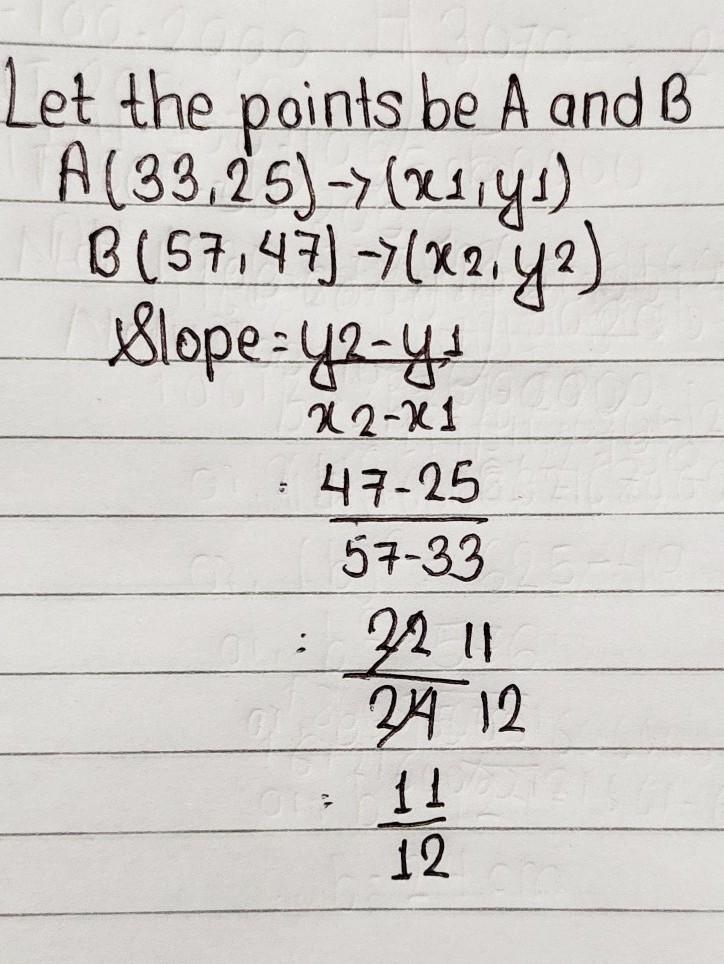 Let the points be A and B
A(33,25)->(x1,y1)
B(57,47)->(x2,y2)
Slope=y2-y1
x2-x1
= 47-25
57-33
= 22 11
24 12
= 11
12